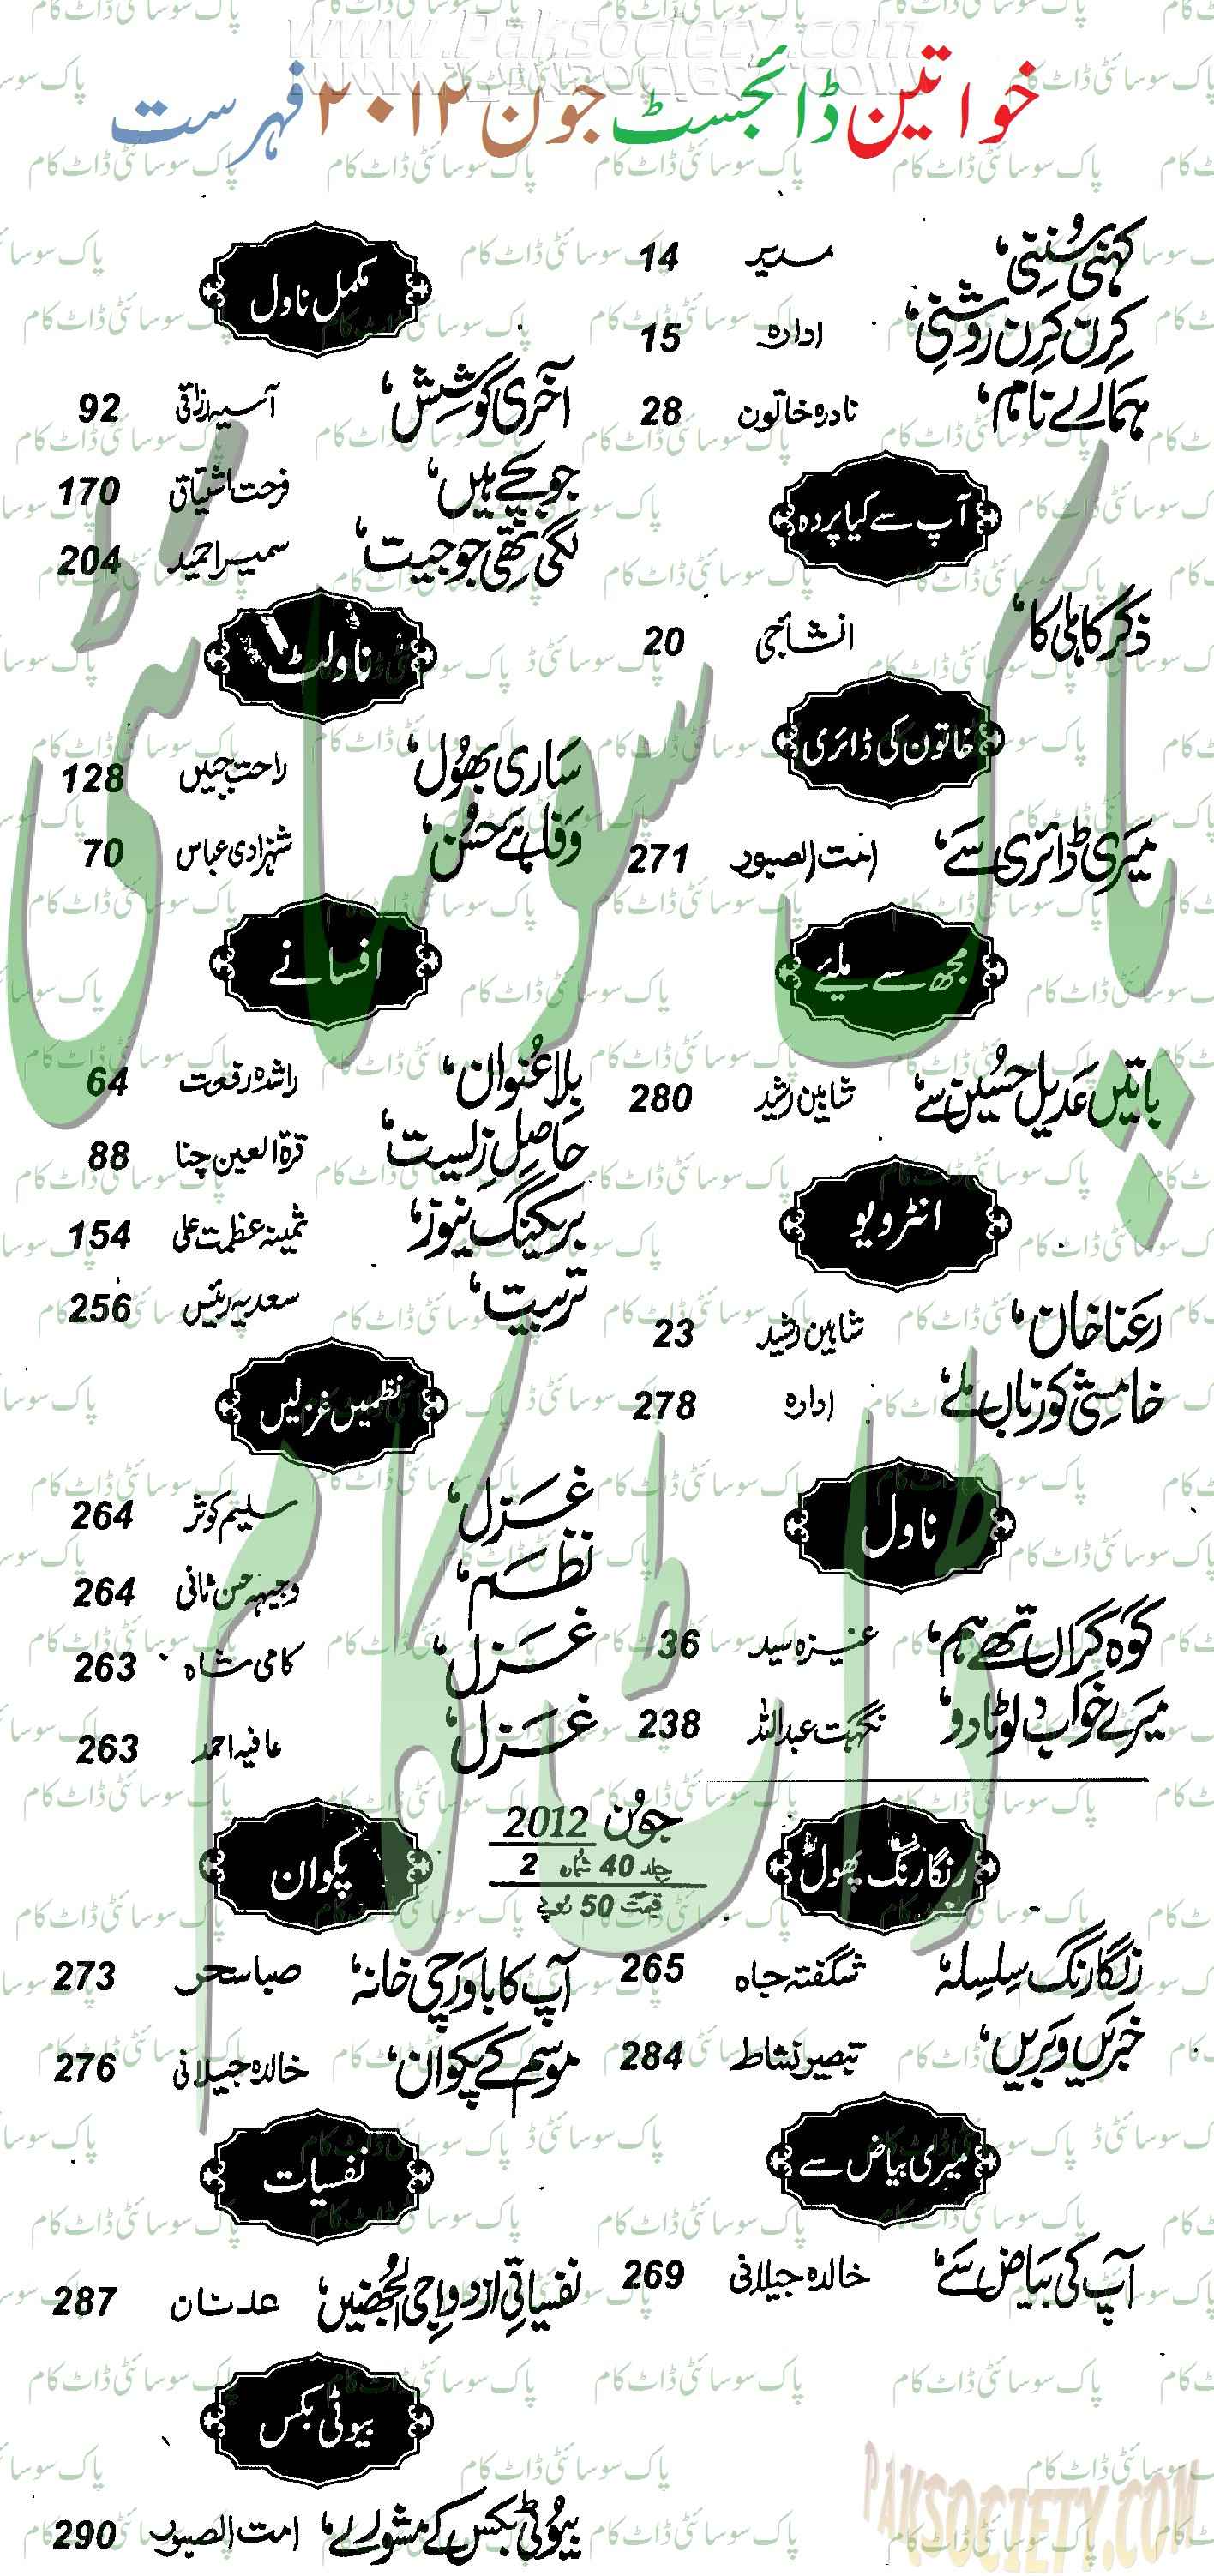 خواتین ڈائجسٹ جون ۲۰۱۲ فہرست
کہنی سننی، مدیر 14
کرن کرن روشنی، ادارہ 15
ہمارے نام، نادرہ خاتون 28
آپ سے کیا پردہ
ذکر کاہلی کا، انشاجی 20
خاتون کی ڈائری
میری ڈائری سے، امت الصبور 271
مجھ سے ملیے
باتیں عدیل حسین سے، شاہین رشید 280
انٹرویو
رعنا خان، شاہین رشید 23
خامشی کو زباں ملے، ادارہ 278
ناول
کوہ گراں تھے ہم، عنیزہ سید 36
میرے خواب لوٹا دو، نگہت عبداللہ 238
مکمل ناول
آخری کوشش، آسیہ رزاقی 92
جو بچے ہیں، فرحت اشتیاق 170
لگی تھی جو جیت، سمیرا حمید 204
ناولٹ
ساری بھول، راحت جبیں 128
وفا ہے حسن، شہزادی عباس 70
افسانے
بلا عنوان، راشدہ رفعت 64
حاصل زیست، قرۃ العین چنا 88
بریکنگ نیوز، ثمینہ عظمت علی 154
تربیت، سعدیہ رئیس 256
نظمیں غزلیں
غزل، سلیم کوثر 264
نظم، وجیہہ حسن ثانی 264
غزل، کامی شاہ 263
غزل، عافیہ احمد 263
جون 2012
جلد 40 شمارہ 2
قیمت 50 روپے
رنگارنگ پھول
رنگارنگ سلسلہ، شگفتہ جاہ 265
خبریں وبریں، تبصیر نشاط 284
میری بیاض سے
آپ کی بیاض سے، خالدہ جیلانی 269
پکوان
آپ کا باورچی خانہ، صبا سحر 273
موسم کے پکوان، خالدہ جیلانی 276
نفسیات
نفسیاتی ازدواجی الجھنیں، عدنان 287
بیوٹی بکس
بیوٹی بکس کے مشورے، امت الصبور 290
پاک سوسائٹی ڈاٹ کام
www.Paksociety.com
PAKSOCIETY.COM